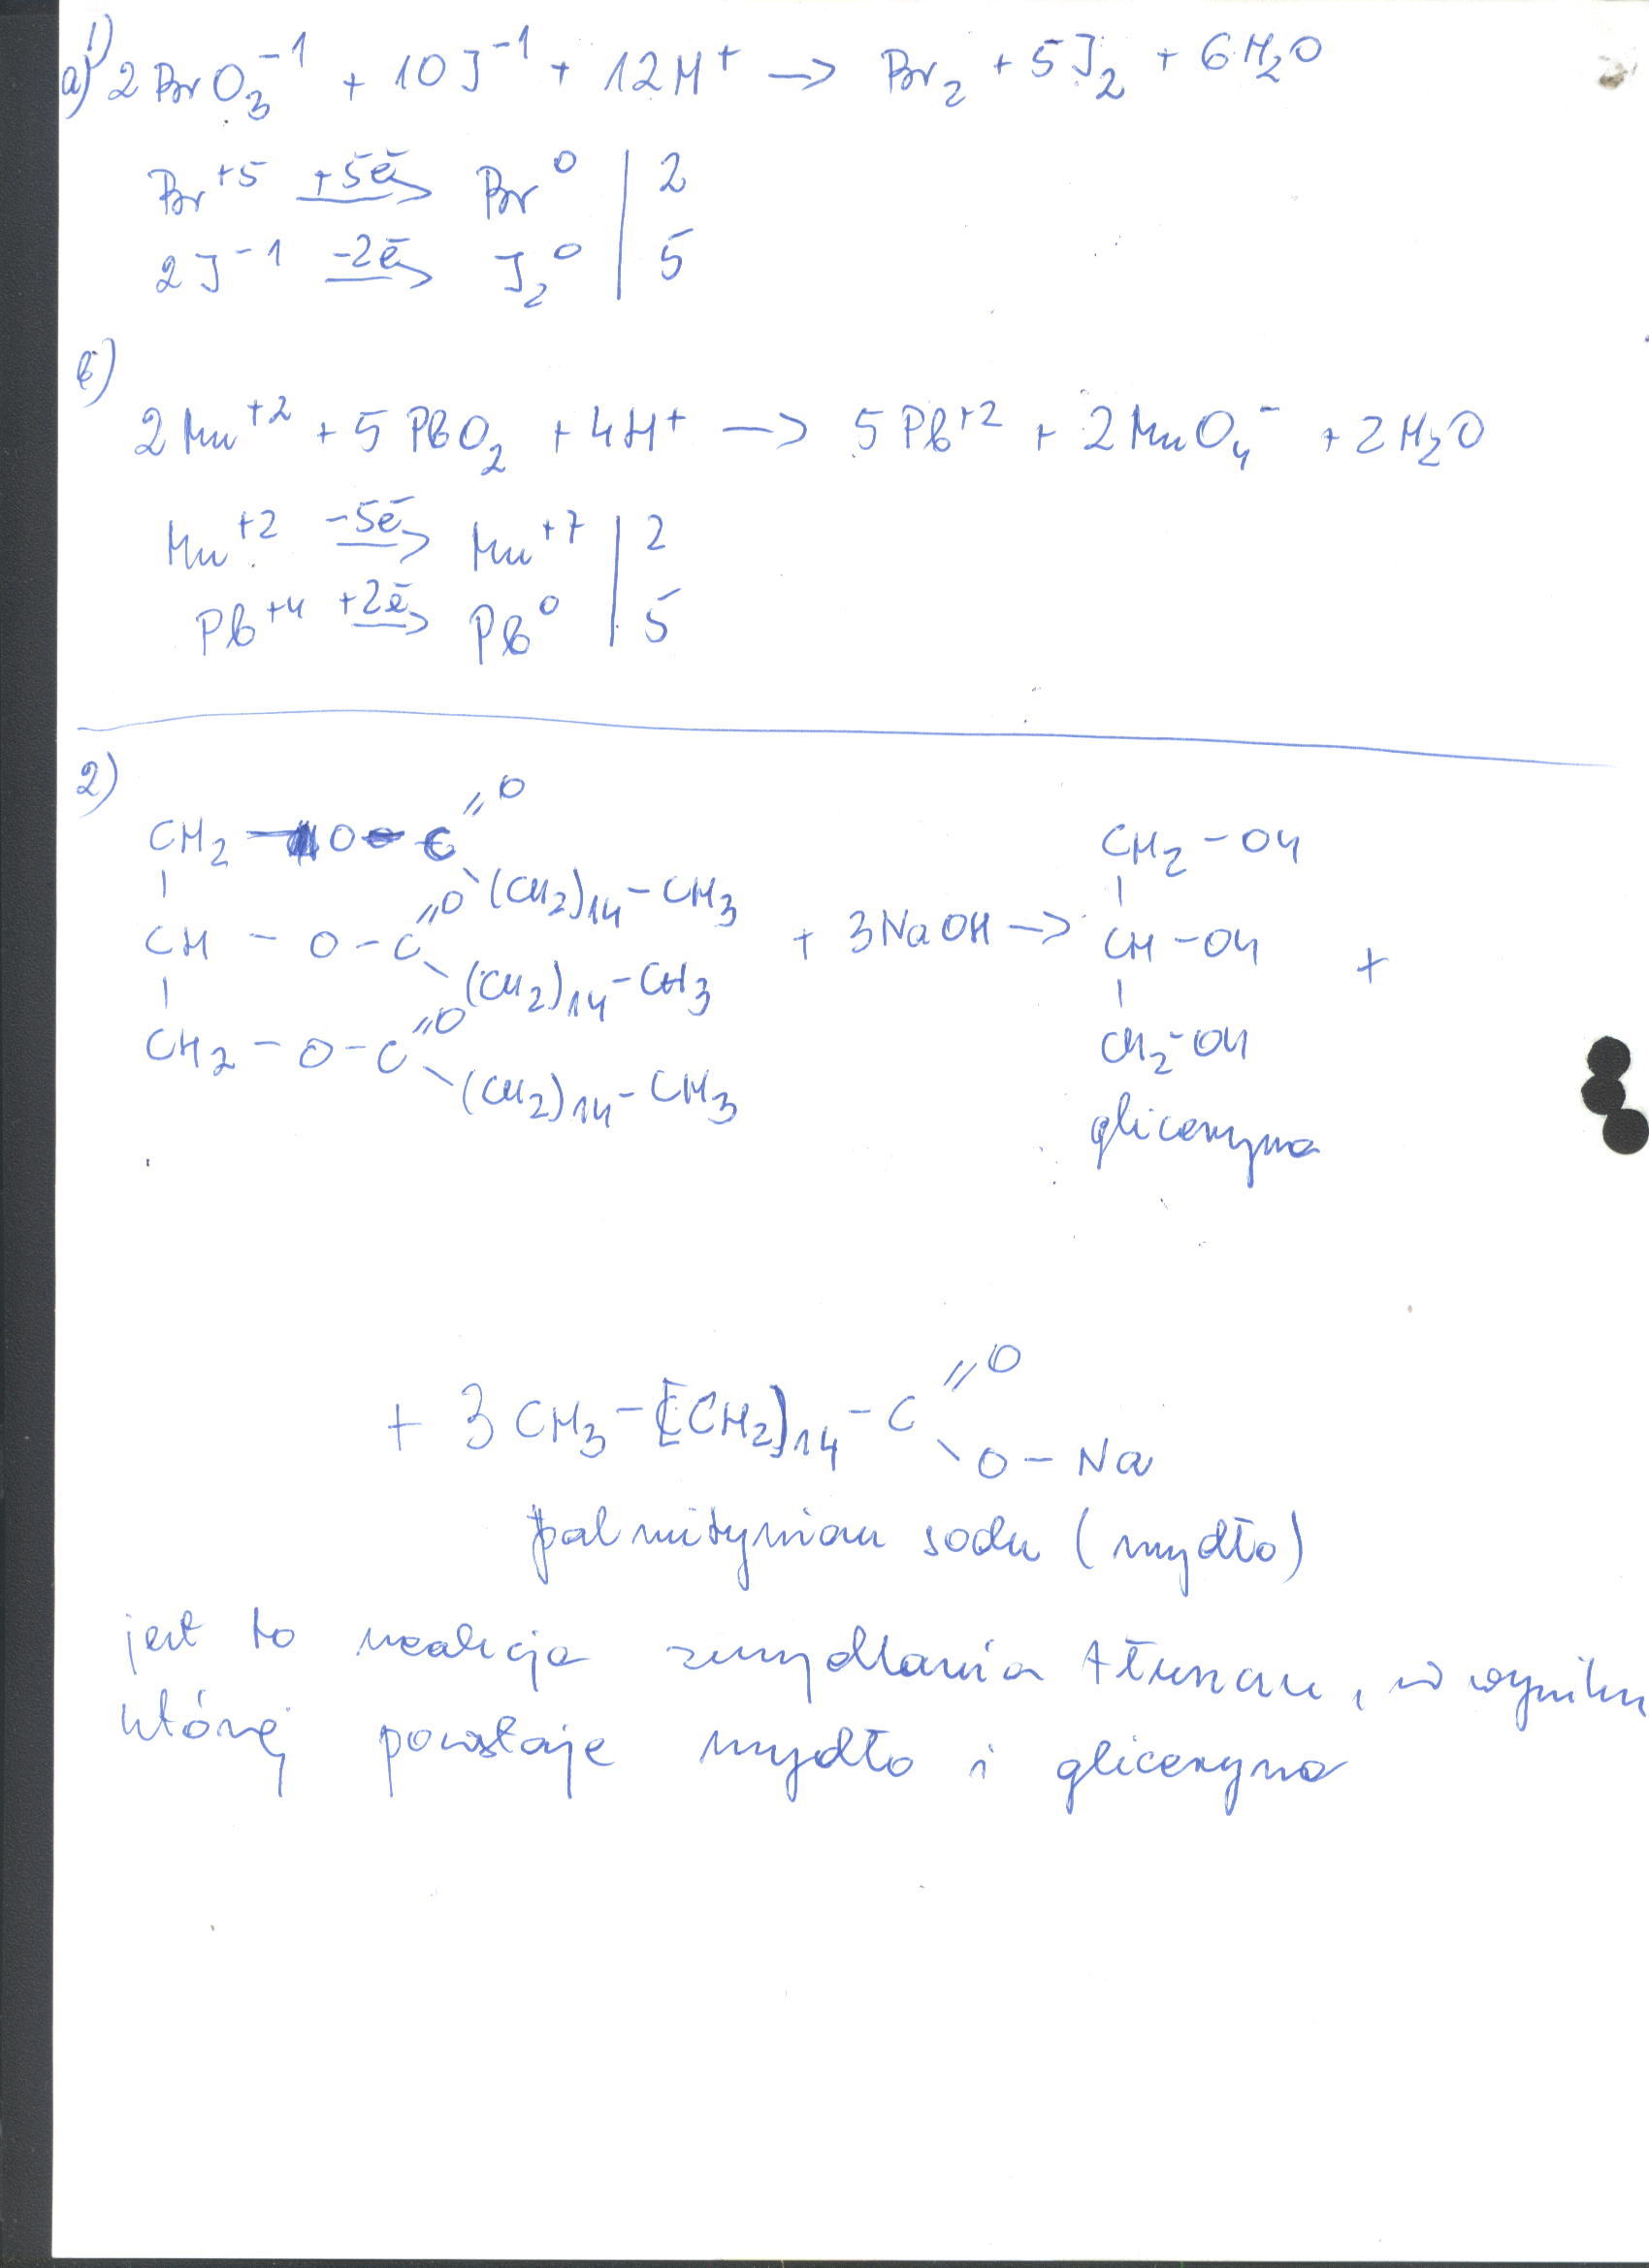 1)
a) 2 BrO₃⁻¹ + 10 J⁻¹ + 12 H⁺ → Br₂ + 5 J₂ + 6 H₂O
Br⁺⁵ +5ē→ Br⁰ | 2
2 J⁻¹ -2ē→ J₂⁰ | 5
b)
2 Mn⁺² + 5 PbO₂ + 4H⁺ → 5 Pb⁺² + 2 MnO₄⁻ + 2 H₂O
Mn⁺² -5ē→ Mn⁺⁷ | 2
Pb⁺⁴ +2ē→ Pb⁰ | 5
2)
=O
CH₂ - O - C CH₂ - OH
| \ (CH₂)₁₄ - CH₃ |
=O
CH - O - C + 3 NaOH → CH - OH +
| \ (CH₂)₁₄ - CH₃ |
=O
CH₂ - O - C CH₂ - OH
\ (CH₂)₁₄ - CH₃
gliceryna
=O
+ 3 CH₃ - [CH₂]₁₄ - C
\ O - Na
palmitynian sodu (mydło)
jest to reakcja zmydlania tłuszczu, w wyniku
której powstaje mydło i gliceryna